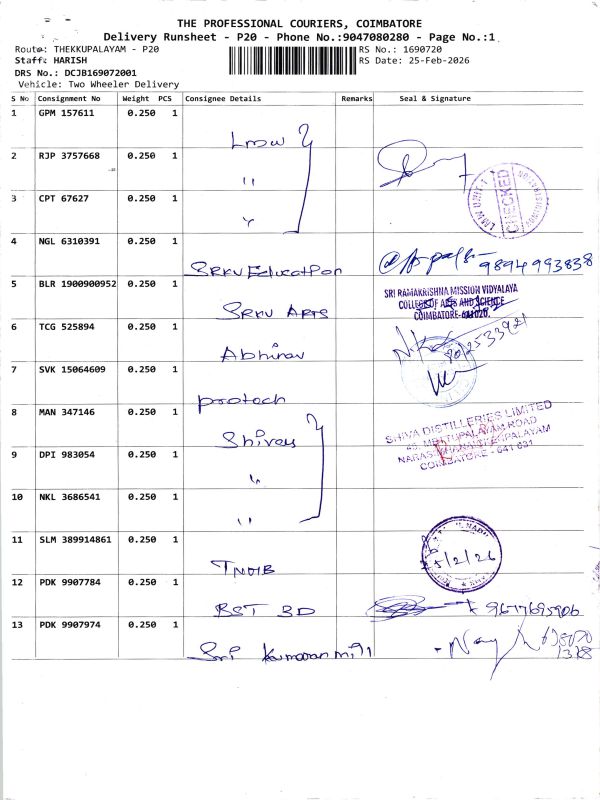 THE PROFESSIONAL COURIERS, COIMBATORE
Delivery Runsheet - P20 - Phone No.:9047080280 - Page No.:1
Route: THEKKUPALAYAM - P20
RS No.: 1690720
Staff: HARISH
RS Date: 25-Feb-2026
DRS No.: DCJB169072001
Vehicle: Two Wheeler Delivery
S No Consignment No Weight PCS Consignee Details Remarks Seal & Signature
1 GPM 157611 0.250 1 Lmw
2 RJP 3757668 0.250 1 "
3 CPT 67627 0.250 1 "
LMW UNIT-1 CHECKED
4 NGL 6310391 0.250 1 SRKV Education
9894993838
5 BLR 1900900952 0.250 1 SRKV ARTS
SRI RAMAKRISHNA MISSION VIDYALAYA
COLLEGE OF ARTS AND SCIENCE
COIMBATORE-641020.
6 TCG 525894 0.250 1 Abhinav
7 SVK 15064609 0.250 1 protech
8 MAN 347146 0.250 1 Shivas
SHIVA DISTILLERIES LIMITED
METTUPALAYAM ROAD
COIMBATORE - 641 031
9 DPI 983054 0.250 1 "
10 NKL 3686541 0.250 1 "
11 SLM 389914861 0.250 1 TNDIB
25/2/26
12 PDK 9907784 0.250 1 BST 3D
13 PDK 9907974 0.250 1 Sri Kumaran mill